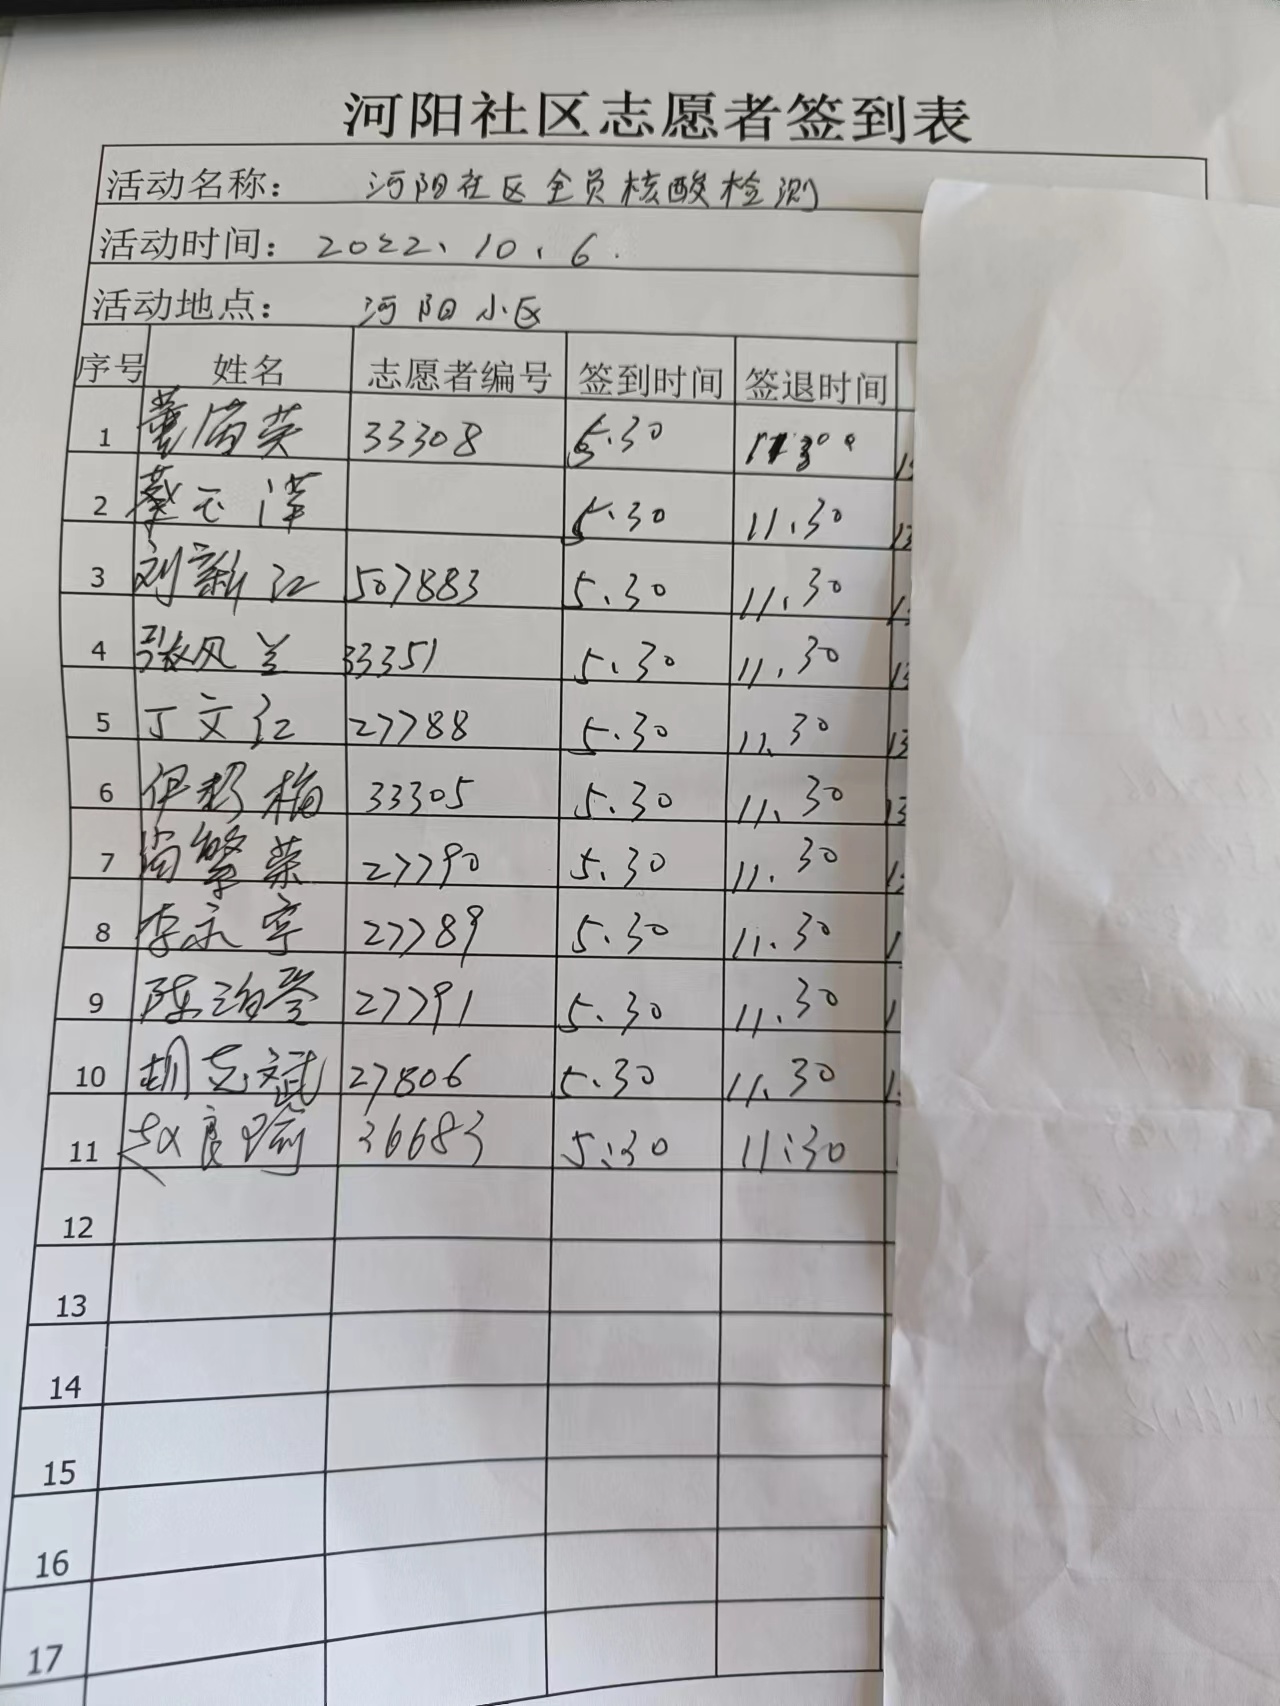 河阳社区志愿者签到表
活动名称: 河阳社区全员核酸检测
活动时间: 2022、10、6.
活动地点: 河阳小区
序号 姓名 志愿者编号 签到时间 签退时间
1 33308 5.30
2 5.30 11.30
3 刘新江 507883 5.30 11.30
4 张风兰 33351 5.30 11.30
5 丁文红 27788 5.30 11.30
6 伊彩梅 33305 5.30 11.30
7 尚繁荣 27790 5.30 11.30
8 李永宁 27789 5.30 11.30
9 27791 5.30 11.30
10 胡志斌 27806 5.30 11.30
11 赵良瑜 36683 5:30 11:30
12
13
14
15
16
17